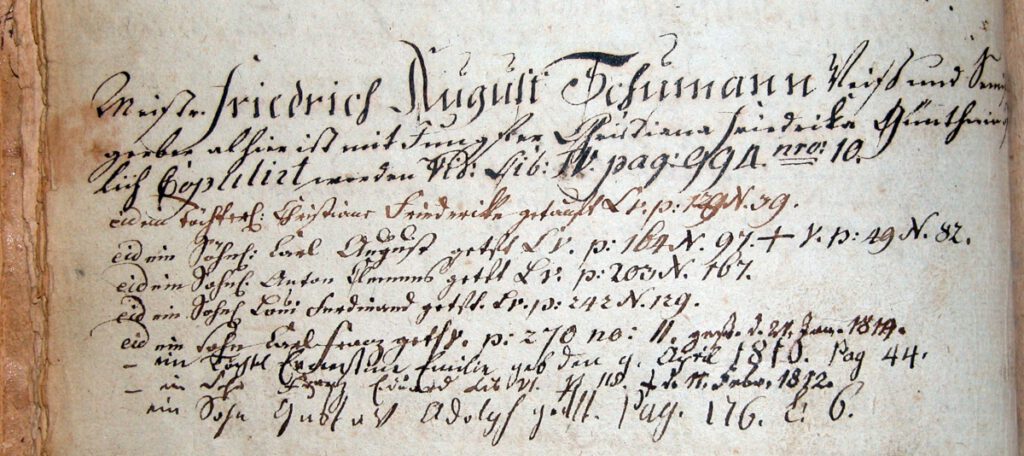 Meistr. Friedrich August Schumann Weiß und Säm
gerber alhier ist mit Jungfer Christiana Friedrika Günther
lich Copulirt worden Vid: Lib: IV. pag: 994. nro: 10.
eid ein Töchterl: Christiane Friederike getauft L. v. p: N. 39.
eid ein Söhnl: Carl August getft L v. p: 164 N. 97. + V. p: 49 N. 82.
eid ein Söhnl: Anton Clemens getft L v. p: 203 N. 167.
eid ein Söhnl Loui Ferdinand getft. L v. p: 242 N. 129.
eid ein Sohn Carl Franz getft v. p: 270 no: 11. gest. d. 21. Jan. 1814.
– ein Töchtl Ernestine Emilie geb den 9. April 1810. Pag 44.
– ein Sohn Eduard Lib VI. 118. † d. 11. Febr. 1812.
ein Sohn Gustav Adolph getft. Pag. 176. L. 6.